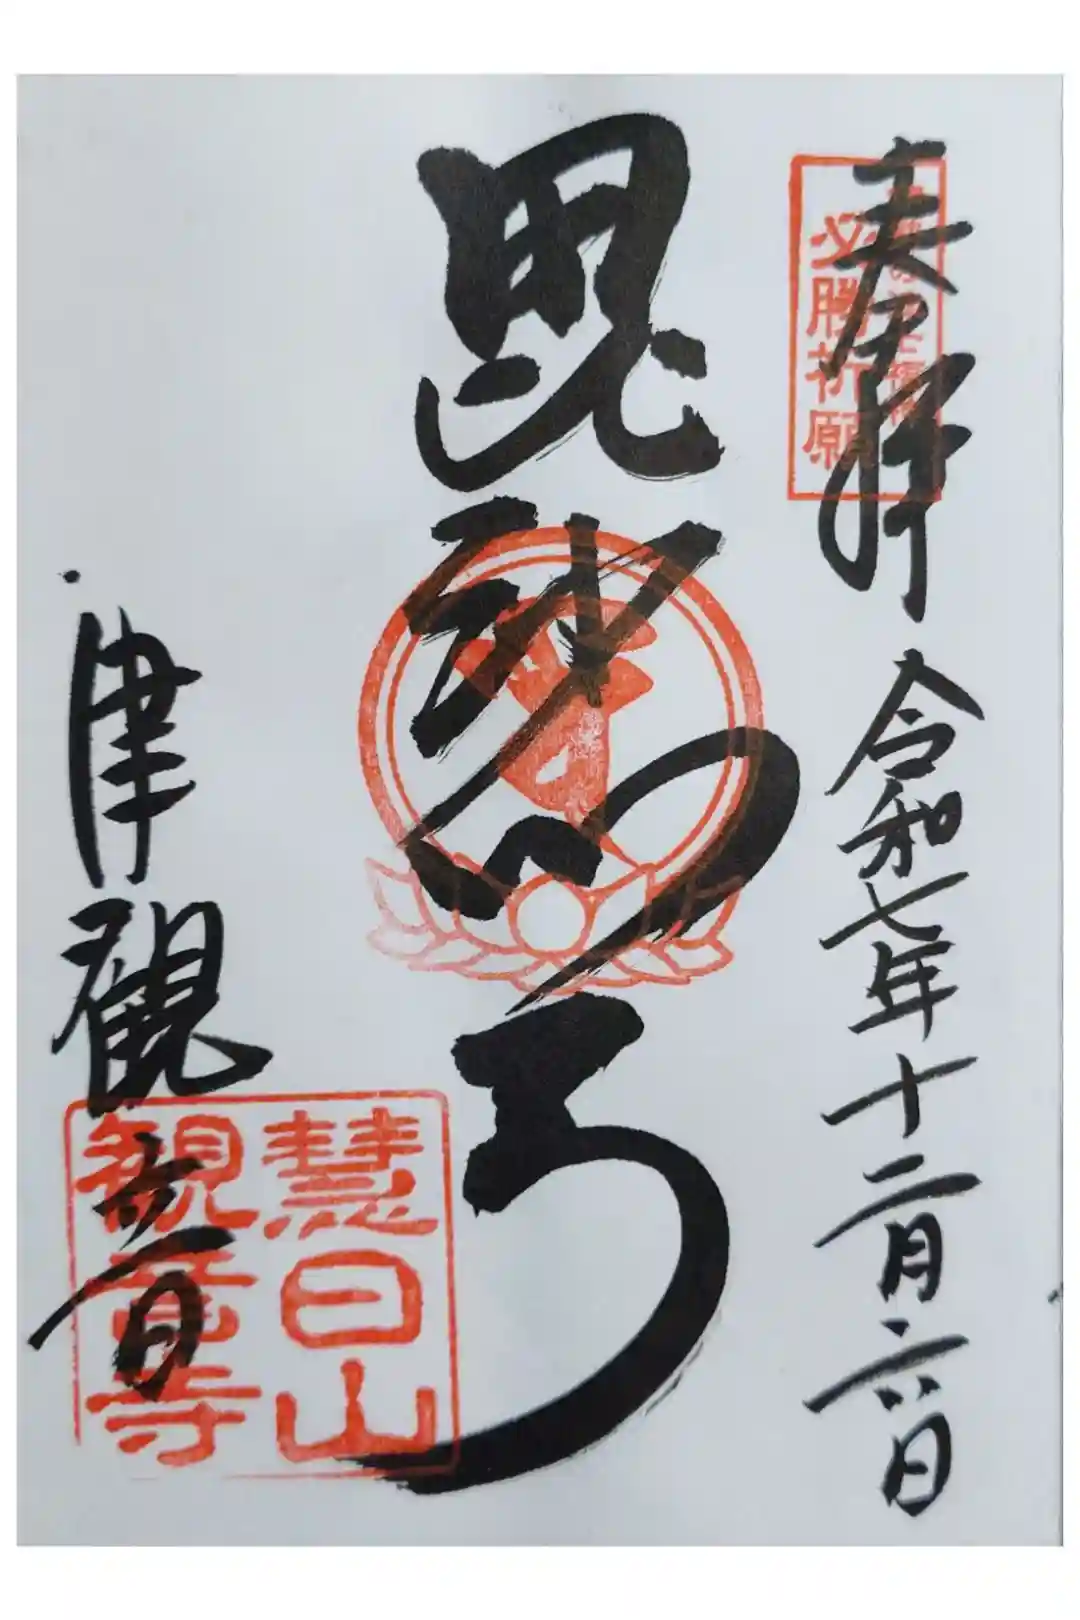 奉拝
必勝祈願
令和七年十二月六日
毘沙門
津観音
慧日山
観音寺